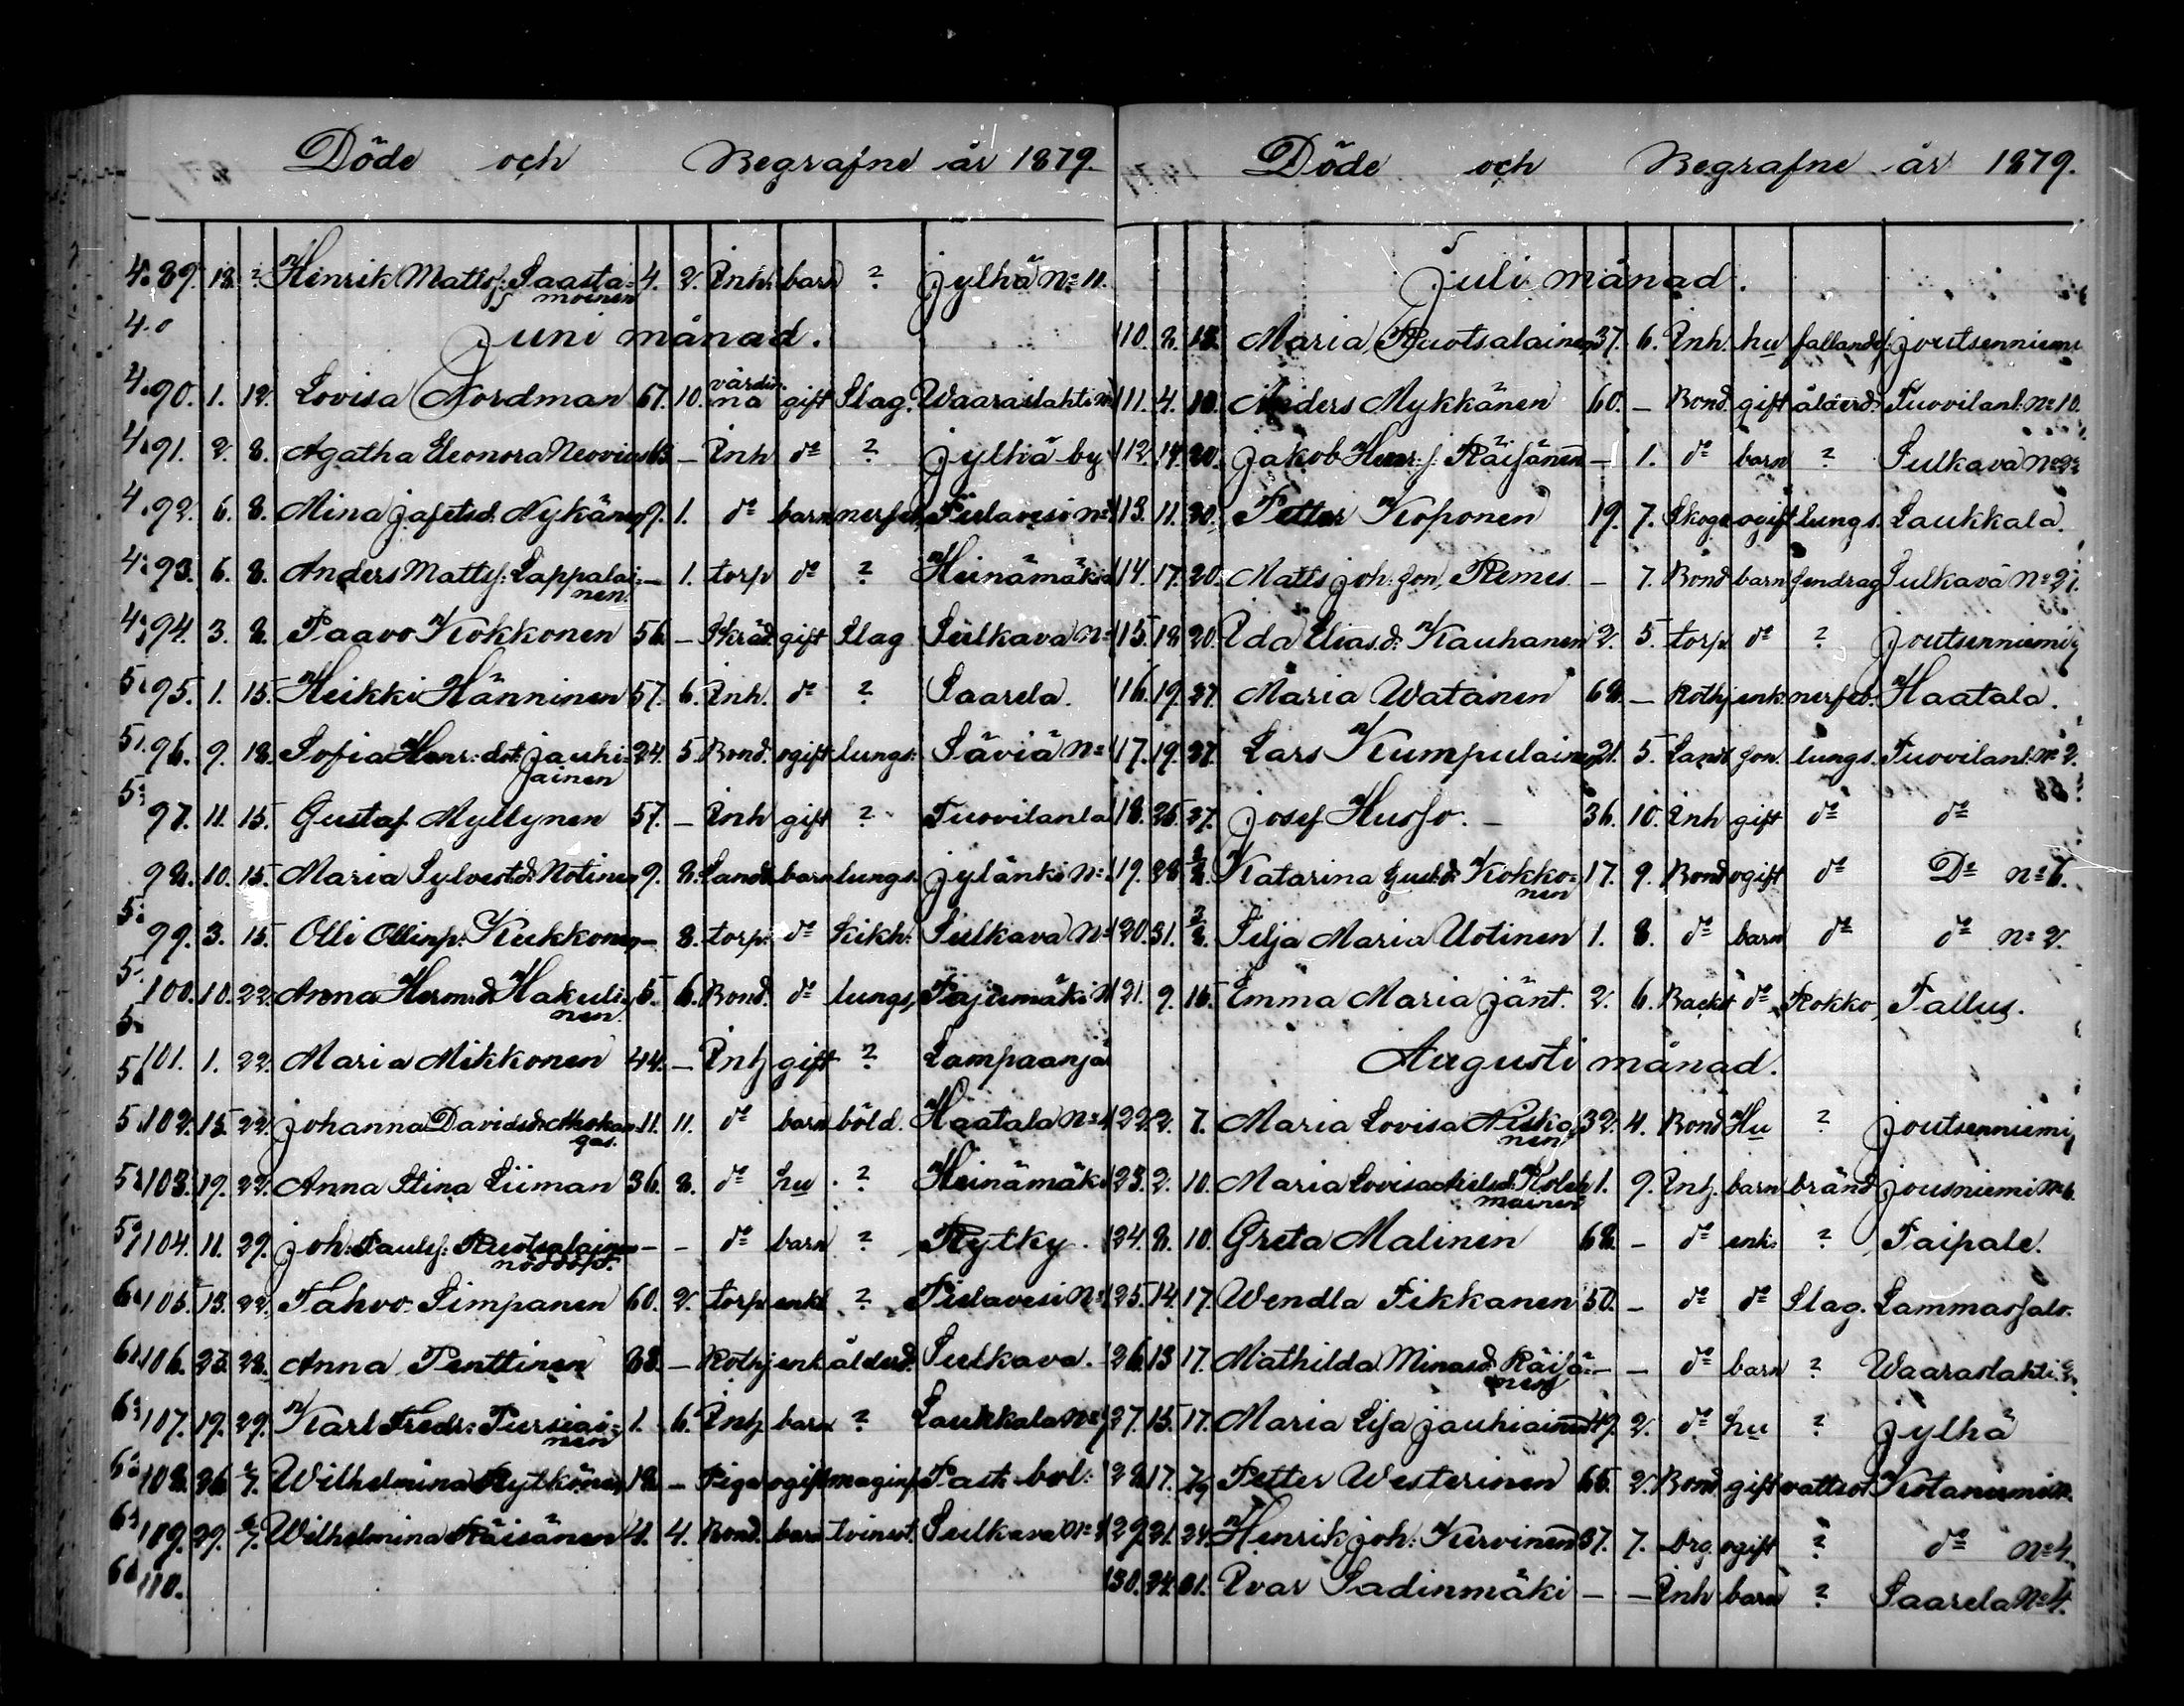 Döde och Begrafne år 1879.
89. 18. ? Henrik Mattss: Saasta= 4. 2. Inh. barn ? Jylhä No 11.
moinen
Juni månad.
90. 1. 12. Lovisa Nordman 67. 10. värdin= gift Slag. Waaraslahti No
na
91. 2. 8. Agatha Eleonora Neovius 63 — Inh do ? Jylhä by
92. 6. 8. Mina Jafetsd. Nykänen 9. 1. do barn nerfeb. Pielavesi No
93. 6. 8. Anders Mattss: Lappalai= — 1. torp do ? Heinämäki
nen.
94. 3. 8. Paavo Kokkonen 56. — Skräd. gift Slag Sulkava No
95. 1. 15. Heikki Hänninen 57. 6. Inh. do ? Saarela.
96. 9. 18. Sofia Henr: dot: Jauhi= 24. 5. Bond. ogift lungs: Säviä No
ainen
97. 11. 15. Gustaf Myllynen 57. — Inh gift ? Tuovilanla
98. 10. 15. Maria Sylvestd: Notinen 9. 8. Landb barn lungs. Jylänki No
99. 3. 15. Olli Ollisp: Kukkonen — 8. torp. do Kikh: Sulkava No
100. 10. 22. Anna Hermsd. Hakuli= 5. 6. Bond. do lungs. Pajumäki N
nen.
101. 1. 22. Maria Mikkonen 44. — Inh gift ? Lampaanjä
102. 15. 22. Johanna Davidsd. 11. 11. do barn böld. Haatala No
gas.
103. 19. 22. Anna Stina Liiman 36. 8. do hu ? Heinämäki
104. 11. 29. Joh: Paulss: Ruotsalainen — — do barn ? Rytky.
nöddöpt.
105. 13. 22. Tahvo Simpanen 60. 2. torp enkl ? Pielavesi No
106. 23. 28. Anna Penttinen 88. — Rothj enk ålderd. Sulkava.
107. 19. 29. Karl Fredr: Pursiai= 1. 6. Inh barn ? Laukkala No
nen
108. 26. 6/7. Wilhelmina Rytkönen 18. — Piga ogift maginf Past: bol:
109. 29. 6/7. Wilhelmina Räisänen 4. 4. Bond. barn tvinsot. Sulkava No
110.
Döde och Begrafne år 1879.
Juli månad.
110. 2. 13. Maria Ruotsalainen 37. 6. Inh. hu fallands. Joutsenniemi
111. 4. 10. Anders Mykkänen 60. — Bond. gift ålderd. Tuovilanl: No 10.
112. 14. 20. Jakob Henr: s. Räisänen — 1. do barn ? Sulkava No 22
113. 11. 20. Petter Koponen 19. 7. Skogv ogift lungs. Laukkala.
114. 17. 20. Matts Joh: son Remes — 7. Bond barn sendrag Sulkava No 27.
115. 18. 20. Ida Eliasd: Kauhanen 2. 5. torp do ? Joutsenniemi
116. 19. 27. Maria Watanen 68. — Rothj enk. nerfeb. Haatala.
117. 19. 27. Lars Kumpulainen 21. 5. Landb son lungs. Tuovilanl. No 2.
118. 25. 27. Josef Husso. — 36. 10. Inh gift do do
119. 28 3/8. Katarina Gustd: Kokko= 17. 9. Bond ogift do Do No 6.
nen
120. 31. 3/8. Silja Maria Uotinen 1. 8. do barn do do No 2.
121. 9. 15. Emma Maria Jänt. 2. 6. Backst do Rokko Tallus.
Augusti månad.
122. 2. 7. Maria Lovisa Niska= 32. 4. Bond Hu ? Joutsenniemi
nen
123. 2. 10. Maria Lovisa Koleh 1. 9. Inh. barn bränd Jousniemi No 6.
mainen
124. 8. 10. Greta Malinen 68. — do enk: ? Taipale.
125. 14. 17. Wendla Pikkanen 50. — do do Slag. Lammassalo.
126. 13 17. Mathilda Minasd. Räisä= — — do barn ? Waaraslahti
nen
127. 15. 17. Maria Lisa Jauhiainen 49. 2. do hu ? Jylhä
128. 17. 7/9 Petter Westerinen 65. 2. Bond gift vattsot Kotaniemi
129. 21. 24. Henrik Joh: Kurvinen 37. 7. Drg. ogift ? do No 4.
130. 24. 31. Ivar Sadinmäki — — Inh barn ? Saarela No 4.